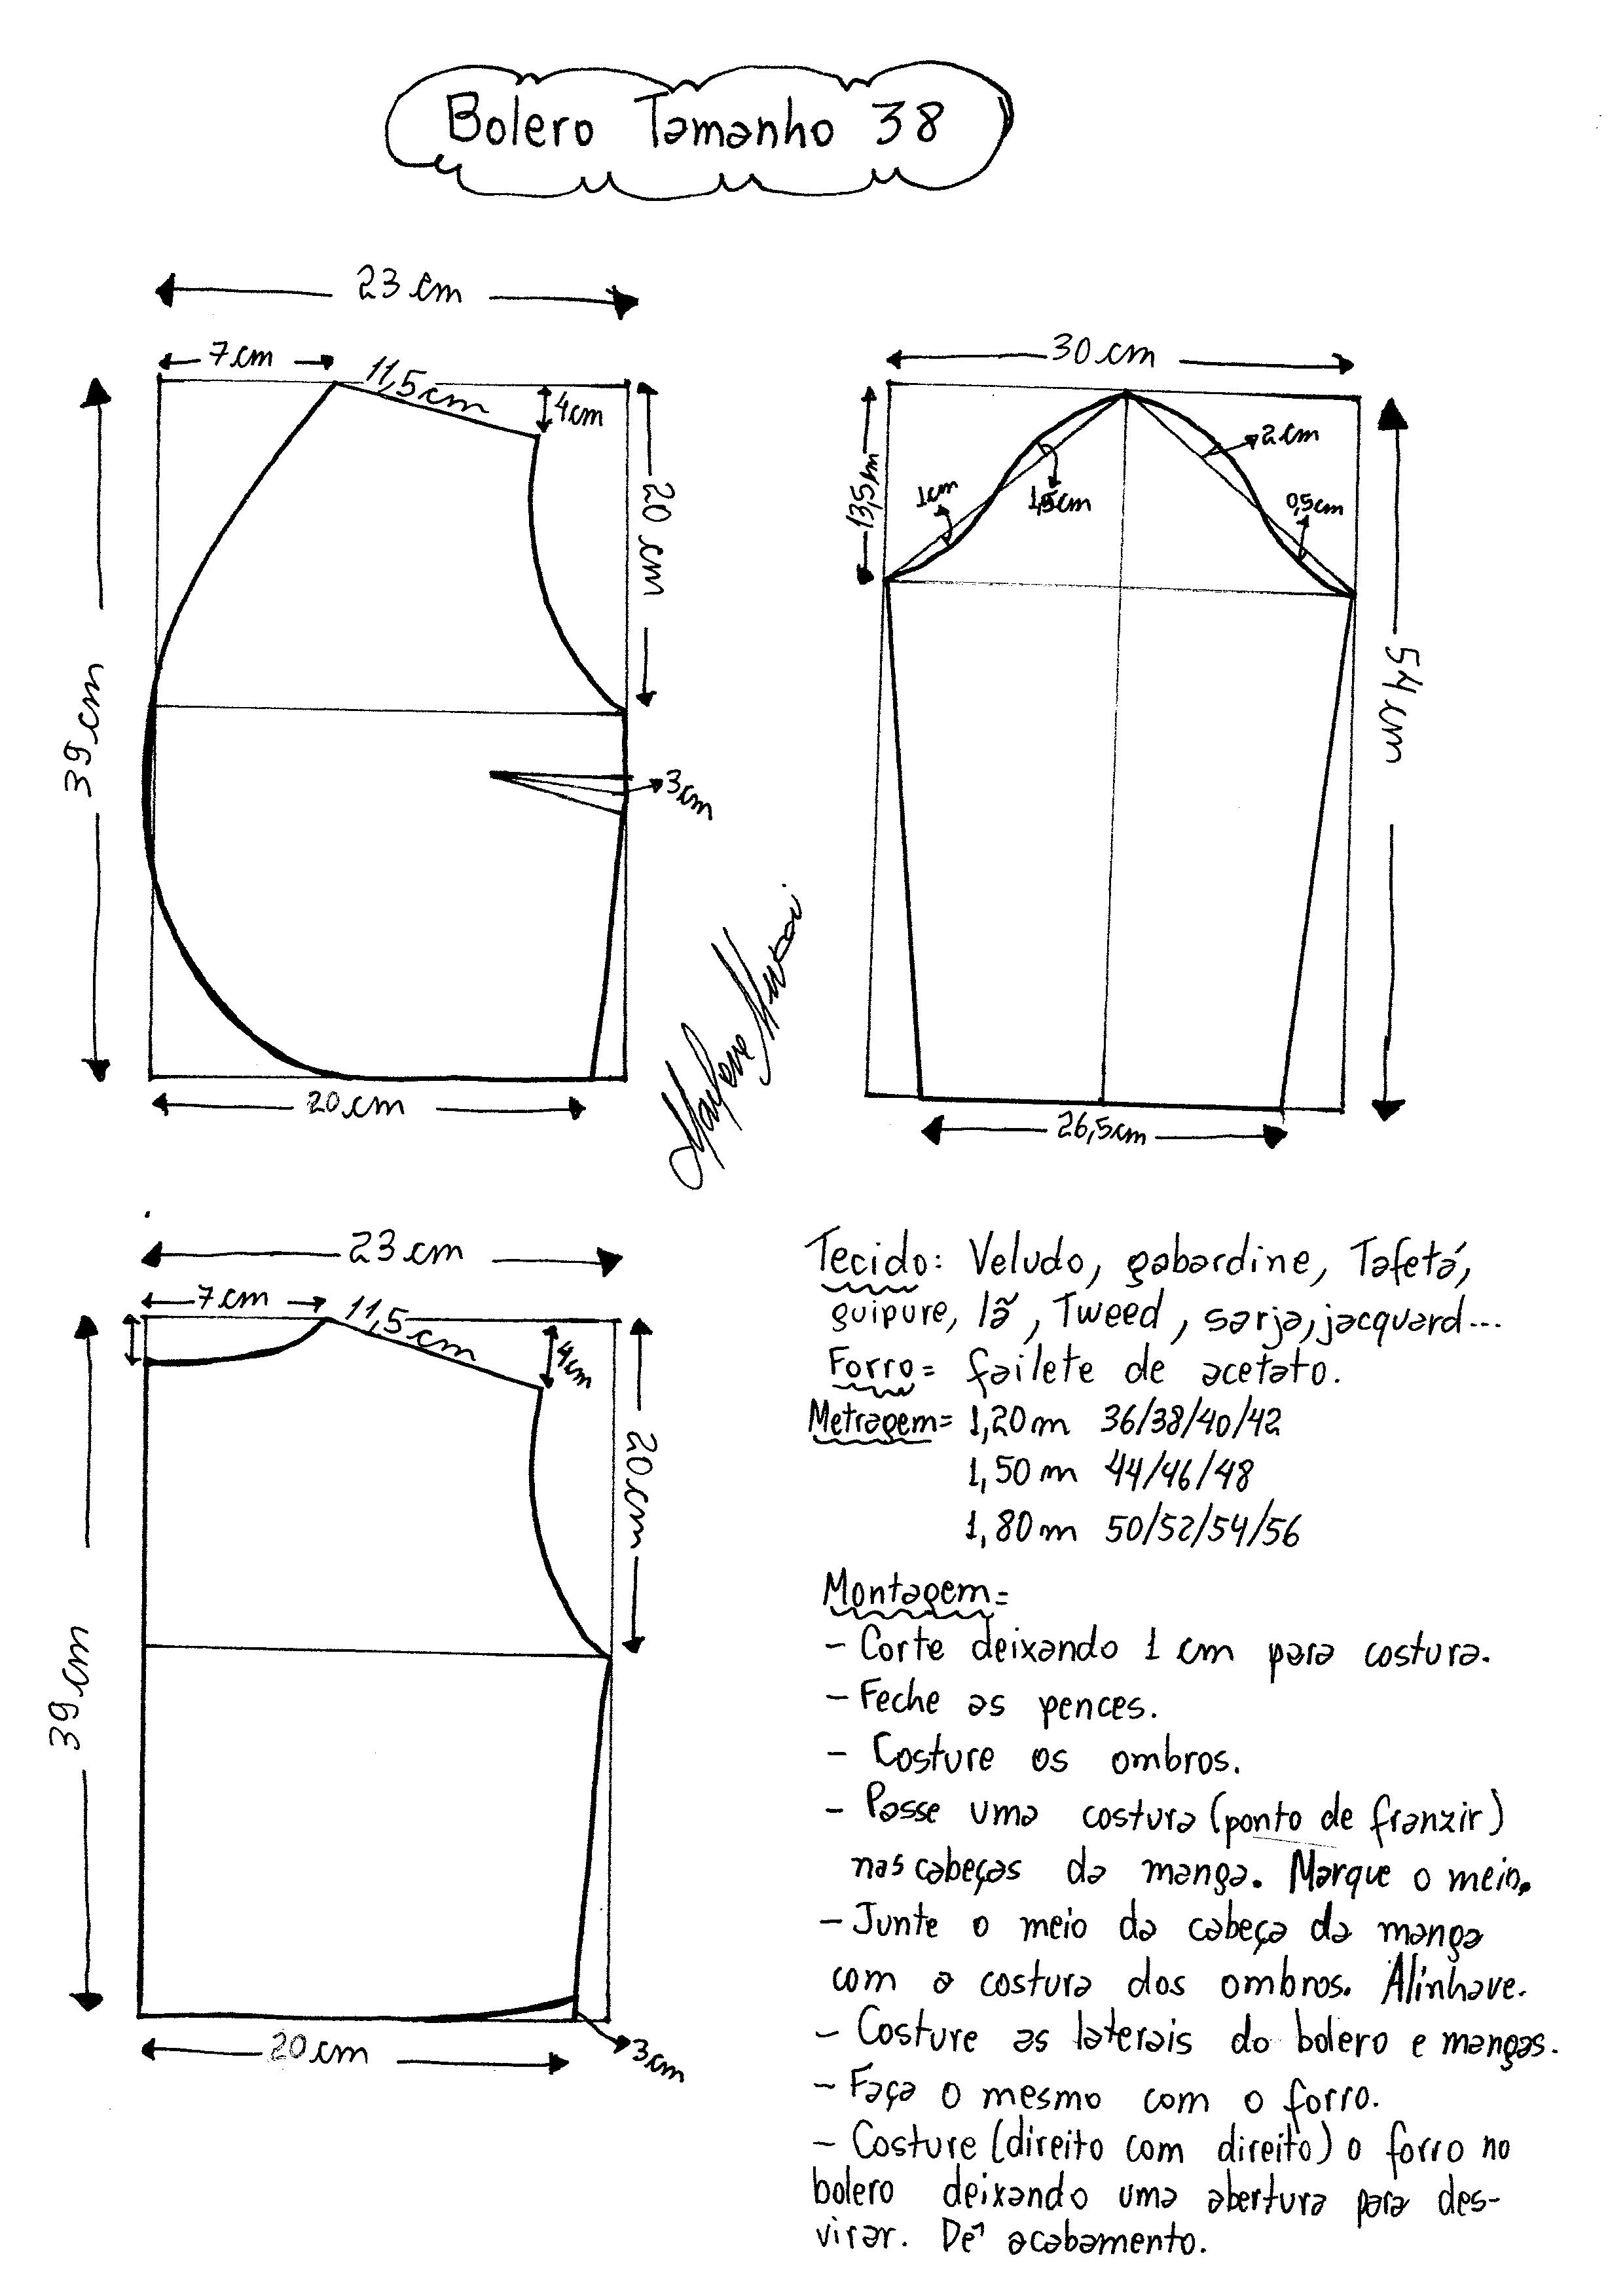 Bolero Tamanho 38
23 cm
7 cm
11,5 cm
4 cm
20 cm
39 cm
3 cm
20 cm
30 cm
13,5 cm
1 cm
1,5 cm
2 cm
0,5 cm
54 cm
26,5 cm
23 cm
7 cm
11,5 cm
4 cm
20 cm
39 cm
20 cm
3 cm
Tecido: Veludo, gabardine, Tafetá,
guipure, lã, Tweed, sarja, jacquard...
Forro= failete de acetato.
Metragem= 1,20 m 36/38/40/42
1,50 m 44/46/48
1,80 m 50/52/54/56
Montagem=
- Corte deixando 1 cm para costura.
- Feche as pences.
- Costure os ombros.
- Passe uma costura (ponto de franzir)
nas cabeças da manga. Marque o meio.
- Junte o meio da cabeça da manga
com a costura dos ombros. Alinhave.
- Costure as laterais do bolero e mangas.
- Faça o mesmo com o forro.
- Costure (direito com direito) o forro no
bolero deixando uma abertura para des-
virar. Dê acabamento.